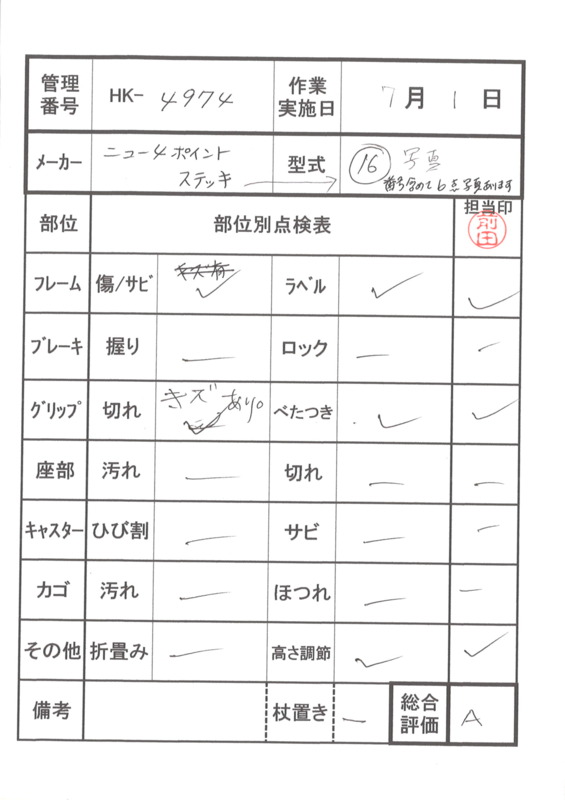 管理番号 HK- 4974 作業実施日 7月1日
メーカー ニュー4ポイント 型式 ⑯ 写真
ステッキ → 番号含めて6点写真あります
部位 部位別点検表 担当印 前田
フレーム 傷/サビ ✓ ラベル ✓ ✓
ブレーキ 握り — ロック — —
グリップ 切れ キズあり。 べたつき ✓ ✓
座部 汚れ — 切れ — —
キャスター ひび割 — サビ — —
カゴ 汚れ — ほつれ — —
その他 折畳み — 高さ調節 ✓ ✓
備考 杖置き — 総合評価 A